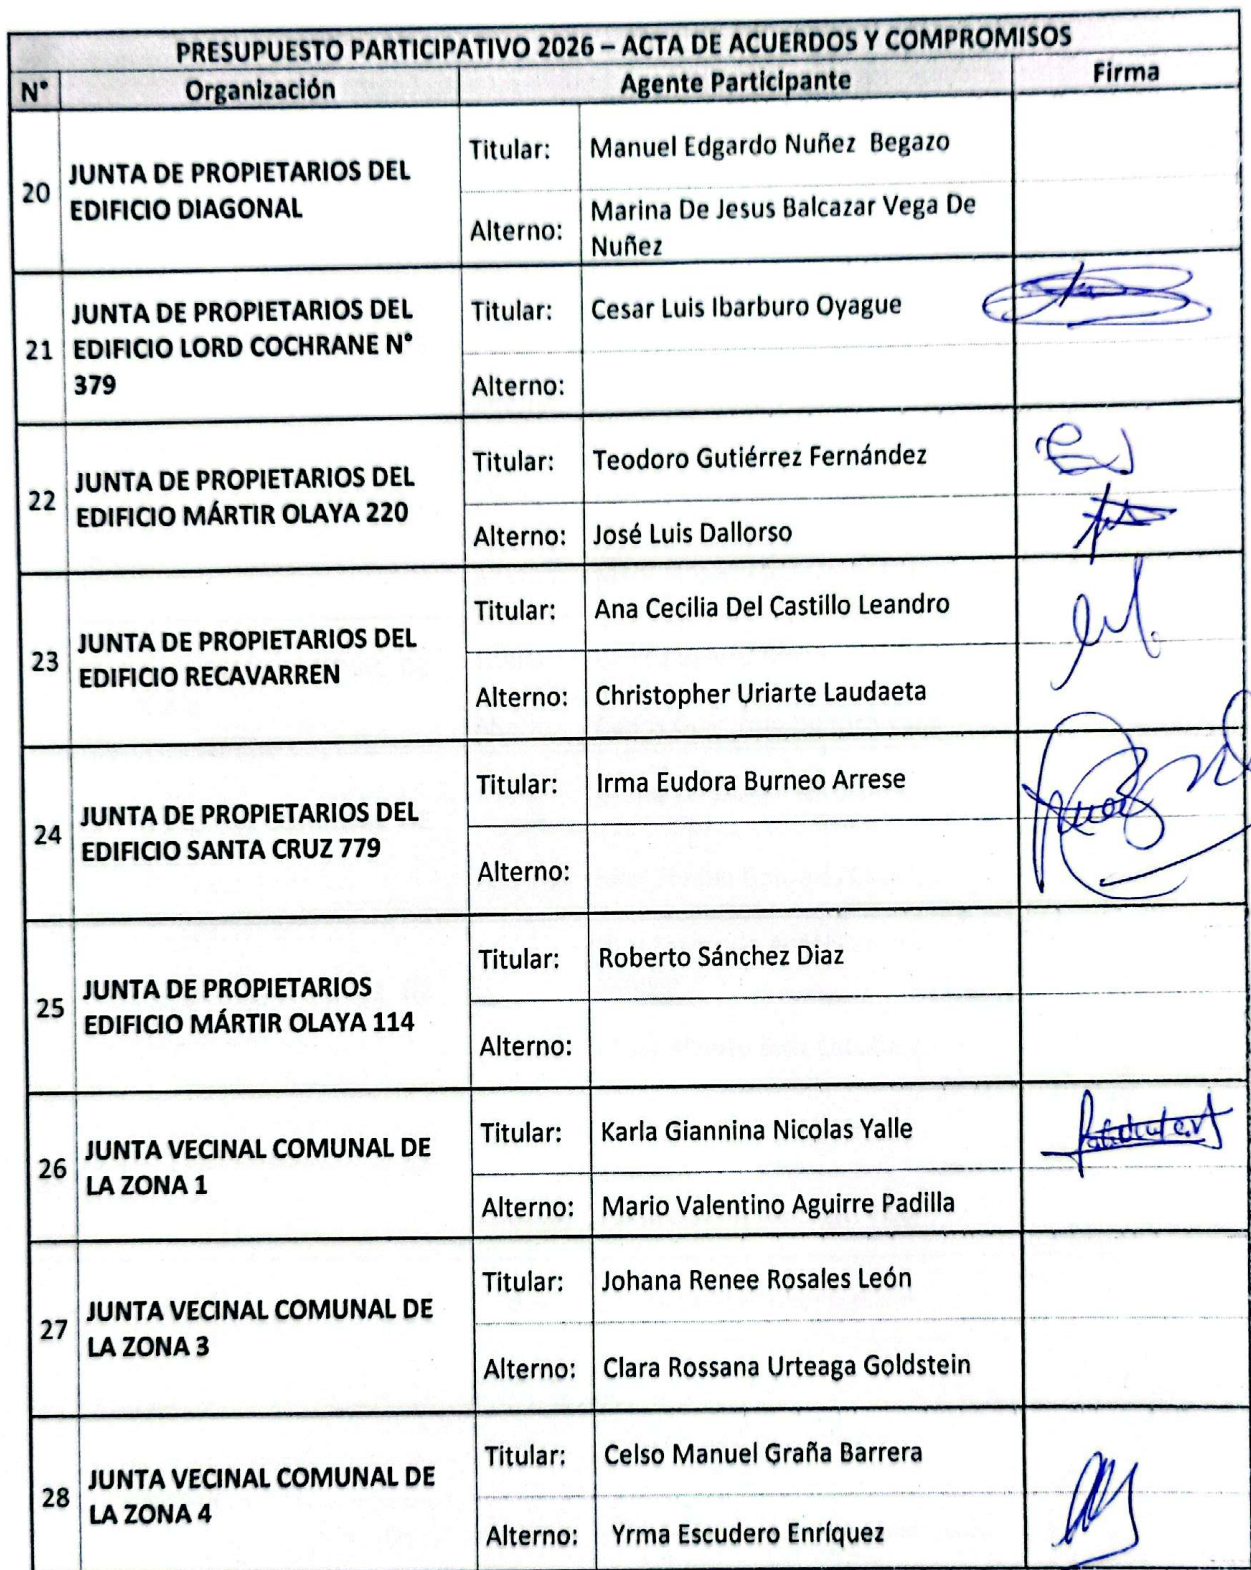 PRESUPUESTO PARTICIPATIVO 2026 – ACTA DE ACUERDOS Y COMPROMISOS
N° Organización Agente Participante Firma
20 JUNTA DE PROPIETARIOS DEL
EDIFICIO DIAGONAL
Titular: Manuel Edgardo Nuñez Begazo
Alterno: Marina De Jesus Balcazar Vega De
Nuñez
21 JUNTA DE PROPIETARIOS DEL
EDIFICIO LORD COCHRANE N°
379
Titular: Cesar Luis Ibarburo Oyague
Alterno:
22 JUNTA DE PROPIETARIOS DEL
EDIFICIO MÁRTIR OLAYA 220
Titular: Teodoro Gutiérrez Fernández
Alterno: José Luis Dallorso
23 JUNTA DE PROPIETARIOS DEL
EDIFICIO RECAVARREN
Titular: Ana Cecilia Del Castillo Leandro
Alterno: Christopher Uriarte Laudaeta
24 JUNTA DE PROPIETARIOS DEL
EDIFICIO SANTA CRUZ 779
Titular: Irma Eudora Burneo Arrese
Alterno:
25 JUNTA DE PROPIETARIOS
EDIFICIO MÁRTIR OLAYA 114
Titular: Roberto Sánchez Diaz
Alterno:
26 JUNTA VECINAL COMUNAL DE
LA ZONA 1
Titular: Karla Giannina Nicolas Yalle
Alterno: Mario Valentino Aguirre Padilla
27 JUNTA VECINAL COMUNAL DE
LA ZONA 3
Titular: Johana Renee Rosales León
Alterno: Clara Rossana Urteaga Goldstein
28 JUNTA VECINAL COMUNAL DE
LA ZONA 4
Titular: Celso Manuel Graña Barrera
Alterno: Yrma Escudero Enríquez